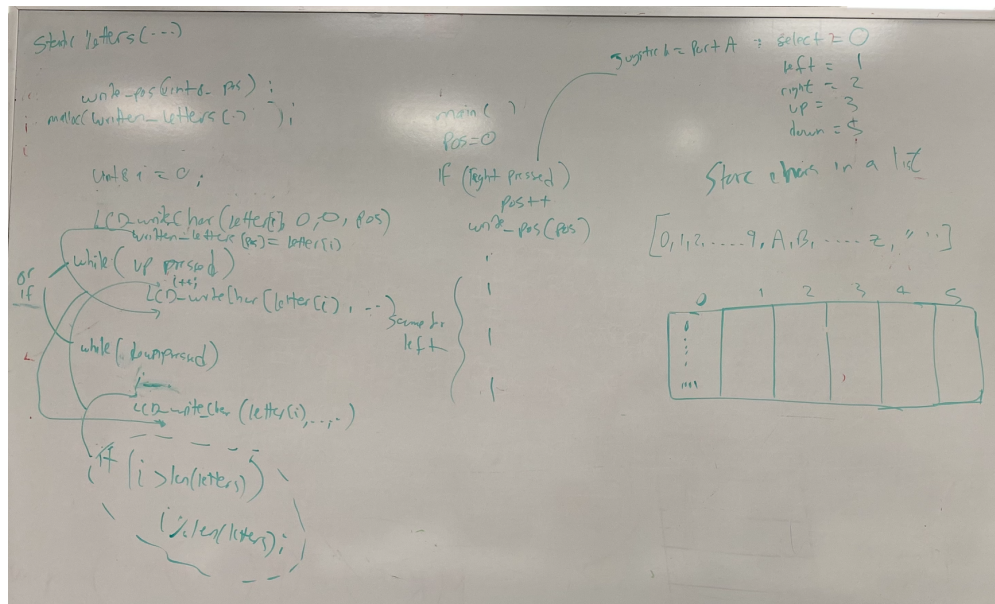 Static letters(...)
write_pos(uint8_ pos);
malloc(written_letters(.) );
uint8 i = 0;
LCD_writeChar(letter[i], 0,0, pos)
written_letters(pos) = letter(i)
or
if
while( up pressed)
i++;
LCD_writeChar(letter(i), ...)
while( down pressed)
i--
LCD_write_Char (letter(i),...,.)
if (i > len(letters))
i % len(letters);
main( )
Pos=0
If (right pressed)
pos++
write_pos(pos)
same for
left
= Port A : select = 0
left = 1
right = 2
up = 3
down = 5
Store chars in a list
[0,1,2.....9, A, B, .... Z, " ...]
0 1 2 3 4 5
0